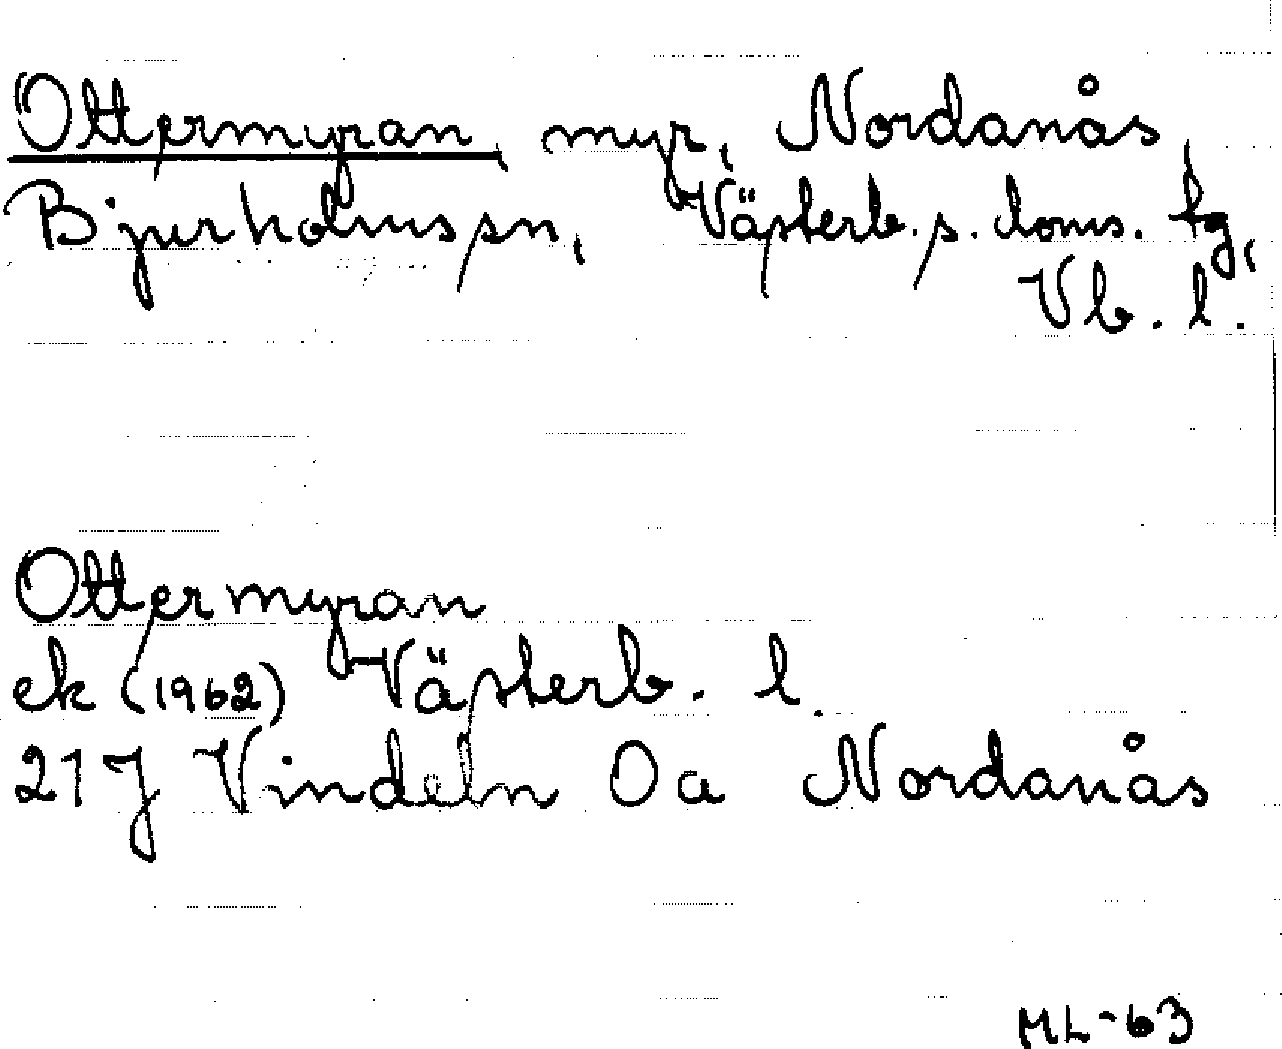 Ottermyran, myr, Nordanås,
Bjurholms sn, Västerb. s. doms. tg,
Vb. l.
Ottermyran
ek (1962) Västerb. l.
21J Vindeln 0a Nordanås
ML-63